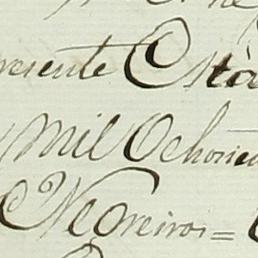 resente Está
Mil Ochocien
Negreiros =